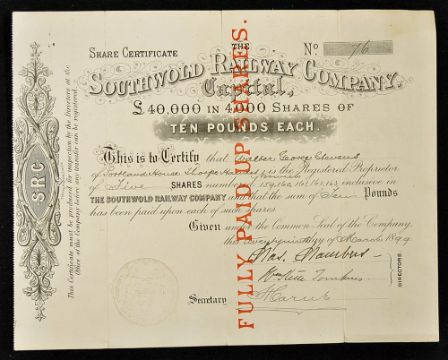 SHARE CERTIFICATE
THE
No 76
SOUTHWOLD RAILWAY COMPANY.
Capital,
£40,000 IN 4,000 SHARES OF
TEN POUNDS EACH.
This is to Certify that Walter George Stevens
of House Thorpe is the Registered Proprietor
of Five SHARES numbered inclusive in
THE SOUTHWOLD RAILWAY COMPANY and that the sum of Ten Pounds
has been paid upon each of such shares
Given under the Common Seal of the Company
this day of March 1899
DIRECTORS
Secretary
FULLY PAID UP SHARES.
SRC
This Certificate must be produced for inspection by the Directors at the
Office of the Company before any transfer can be registered.